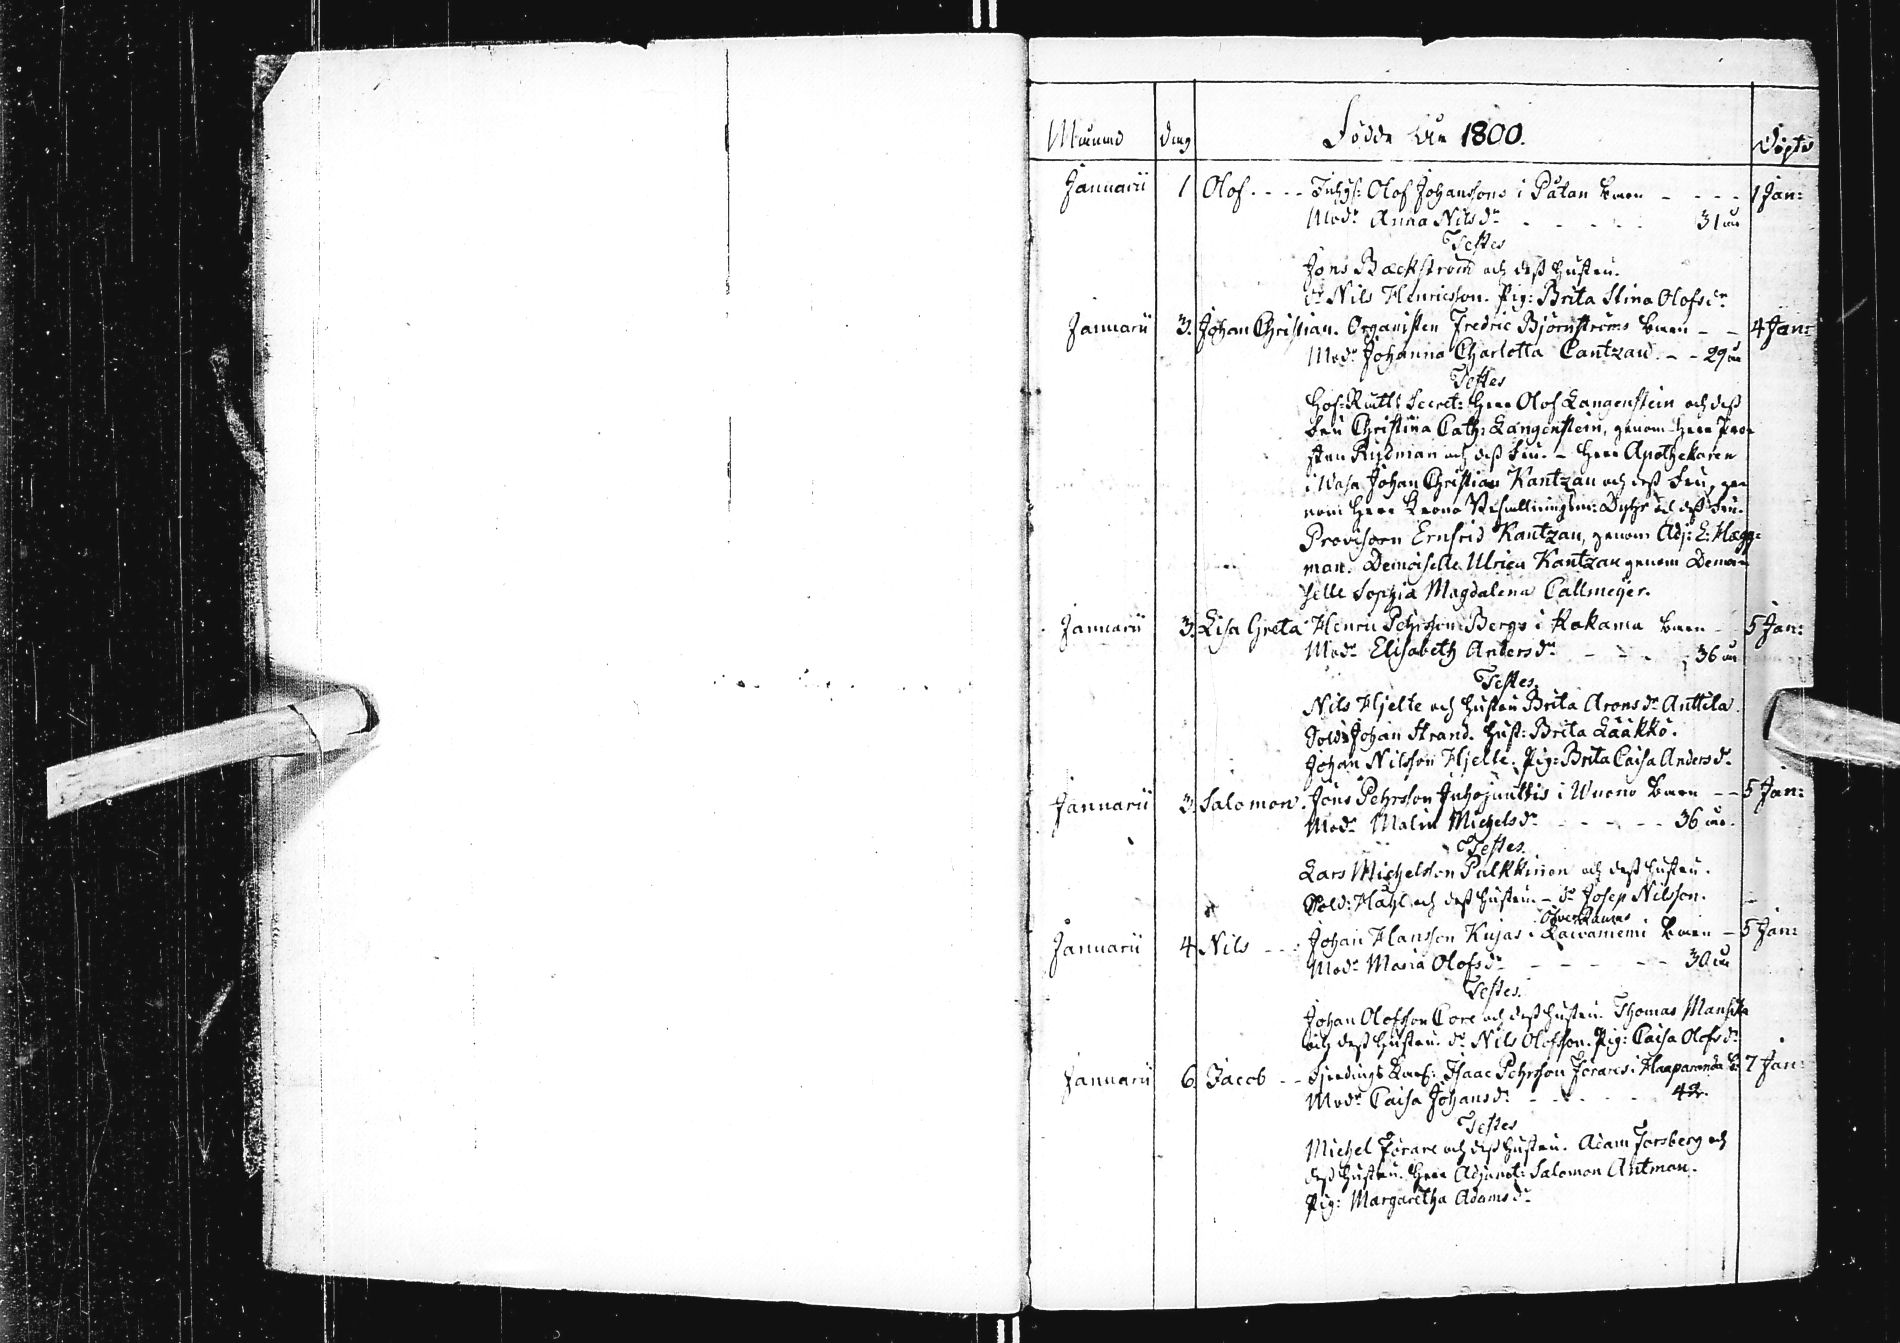 Månad dag Födde År 1800. Döpte
Januarii 1 Olof. - - - Inhys: Olof Johanssons i Påtan barn - - - - 1 Jan:
Mod:r Anna Nilsd:r - - - - - 31 år
Testes
Jöns Backström och dess hustru.
d:r Nils Henricsson. Pig: Brita Stina Olofsd:r
Januarii 3. Johan Christian. Organisten Fredric Björnströms barn - - 4 Jan:
Mod:r Johanna Charlotta Cantzau. - - 29 år
Testes
Hof-Rätts Secret: Herr Olof Langenstein och dess
Fru Christina Cath: Langenstein, genom Herr Pro-
sten Rydman och dess Fru. - Herr Apothekaren
i Wasa Johan Christian Kantzau och dess Fru, ge-
nom Herr Krono Befallningsm: och dess Fru.
Provisorn Ernfrid Kantzau, genom Adj: E: Hægg-
man. Demoiselle Ulrica Kantzau genom Demoi-
selle Sophia Magdalena Callmeyer.
Januarii 3. Lisa Greta Henric Pehrsson Bergs i Kakama barn - - 5 Jan:
Mod:r Elisabeth Andersd:r - - - 36 år
Testes.
Nils Hjelte och hustru Brita Aronsd:r Anttila.
Sold: Johan Strand. Hust: Brita Lääkkö.
Johan Nilsson Hjelte. Pig: Brita Caisa Andersd:r
Januarii 3. Salomon. Jöns Pehrsson Juhojunttis i Wuono barn - - 5 Jan:
Mod:r Malin Michelsd:r - - - - - 36 år.
Testes.
Lars Michelsson Pulkkinen och dess hustru.
Sold: Hahl och dess hustru - d:r Josep Nilsson.
Januarii 4. Nils - - - Johan Hansson Kujas i barn - 5 Jan:
Mod:r Maria Olofsd:r - - - - - 30 år
Testes.
Johan Olofsson Core och dess hustru. Thomas
och dess hustru. d:r Nils Olofsson. Pig: Caisa Olofsd:r
Januarii 6. Jacob - - Fjerdings Karl: Isaac Pehrsson Förares i Haaparanda B: 7 Jan:
Mod:r Caisa Johansd:r - - - - - 42.
Testes
Michel Förare och dess hustru. Adam Forsberg och
dess hustru. Herr Adjunct: Salomon Antman.
Pig: Margaretha Adamsd:r